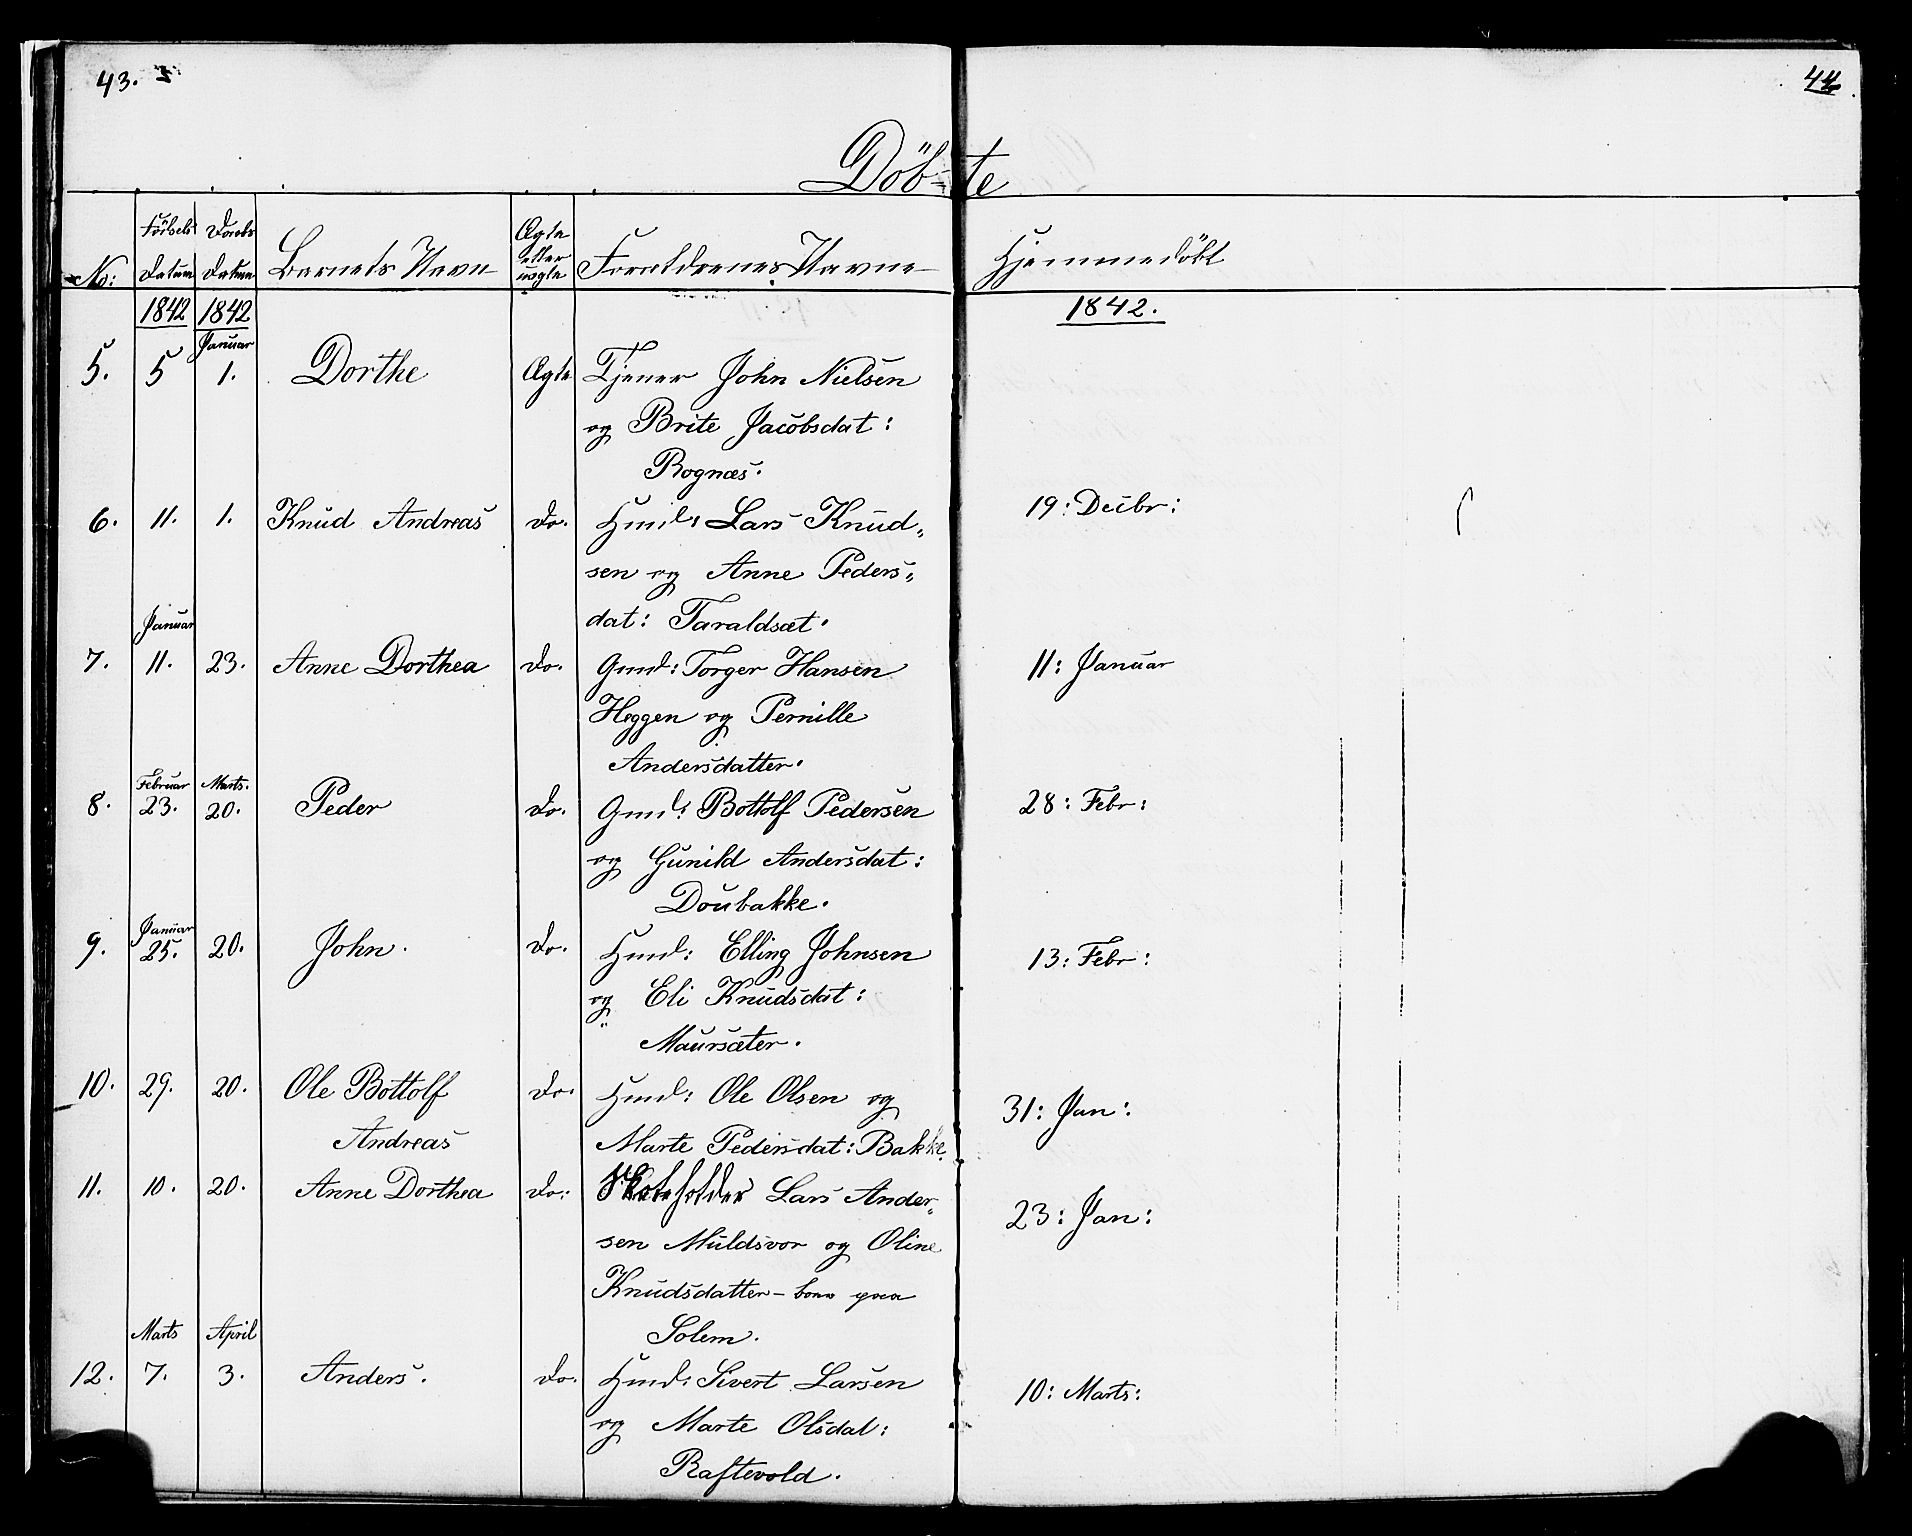 43.
44
Döbte
No:
Födsels Datum
Daabs Datum
Barnets Navn
Ægte eller uægte
Forældrenes Navne
Hjemmedöbt
1842 1842 1842.
Januar
5. 5 1. Dorthe Ægte Tjener John Nielsen
og Brite Jacobsdat:
Rognæs.
6. 11. 1. Knud Andreas Do. Hmd: Lars Knud„ 19: Decbr:
sen og Anne Peders„
dat: Taraldsæt.
Januar
7. 11. 23. Anne Dorthea Do. Gmd: Torger Hansen 11: Januar
Heggen og Pernille
Andersdatter.
Februar Marts.
8. 23. 20. Peder Do. Gmd: Bottolf Pedersen 28: Febr:
og Gunild Andersdat:
Doubakke.
Januar
9. 25. 20. John. Do. Hmd: Elling Johnsen 13: Febr:
og Eli Knudsdat:
Maursæter.
10. 29. 20. Ole Bottolf Do. Hmd: Ole Olsen og 31: Jan:
Andreas Marte Pedersdat: Bakke.
11. 10. 20. Anne Dorthea Do: Skoleholder Lars Ander„ 23: Jan:
sen Muldsvor og Oline
Knudsdatter – boer paa
Solem.
Marts April
12. 7. 3. Anders. Do. Hmd: Sivert Larsen 10: Marts:
og Marte Olsdat:
Raftevold.